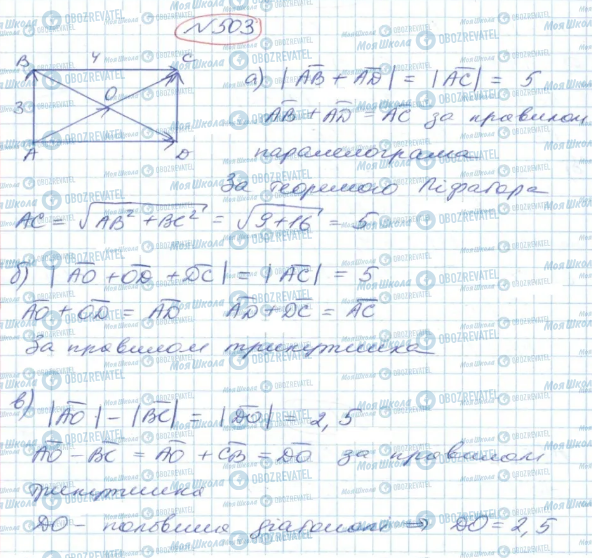 N503
B 4 C
а) |AB + AD| = |AC| = 5
3 O
AB + AD = AC за правилом
A D
паралелограма
За теоремою Піфагора
AC = √AB² + BC² = √9+16 = 5
б) |AO + OD + DC| = |AC| = 5
AO + OD = AD AD + DC = AC
За правилом трикутника
в) |AO| - |BC| = |DO| = 2,5
AO - BC = AO + CB = DO за правилом
трикутника
DO - половина діагоналі ⇒ DO = 2,5
Моя Школа
OBOZREVATEL